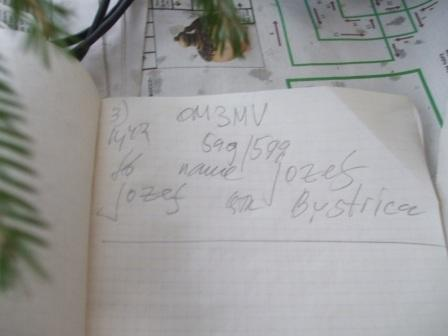 3) OM3MV
1442 599/599
name Jozef
Jozef QTH Bystrica